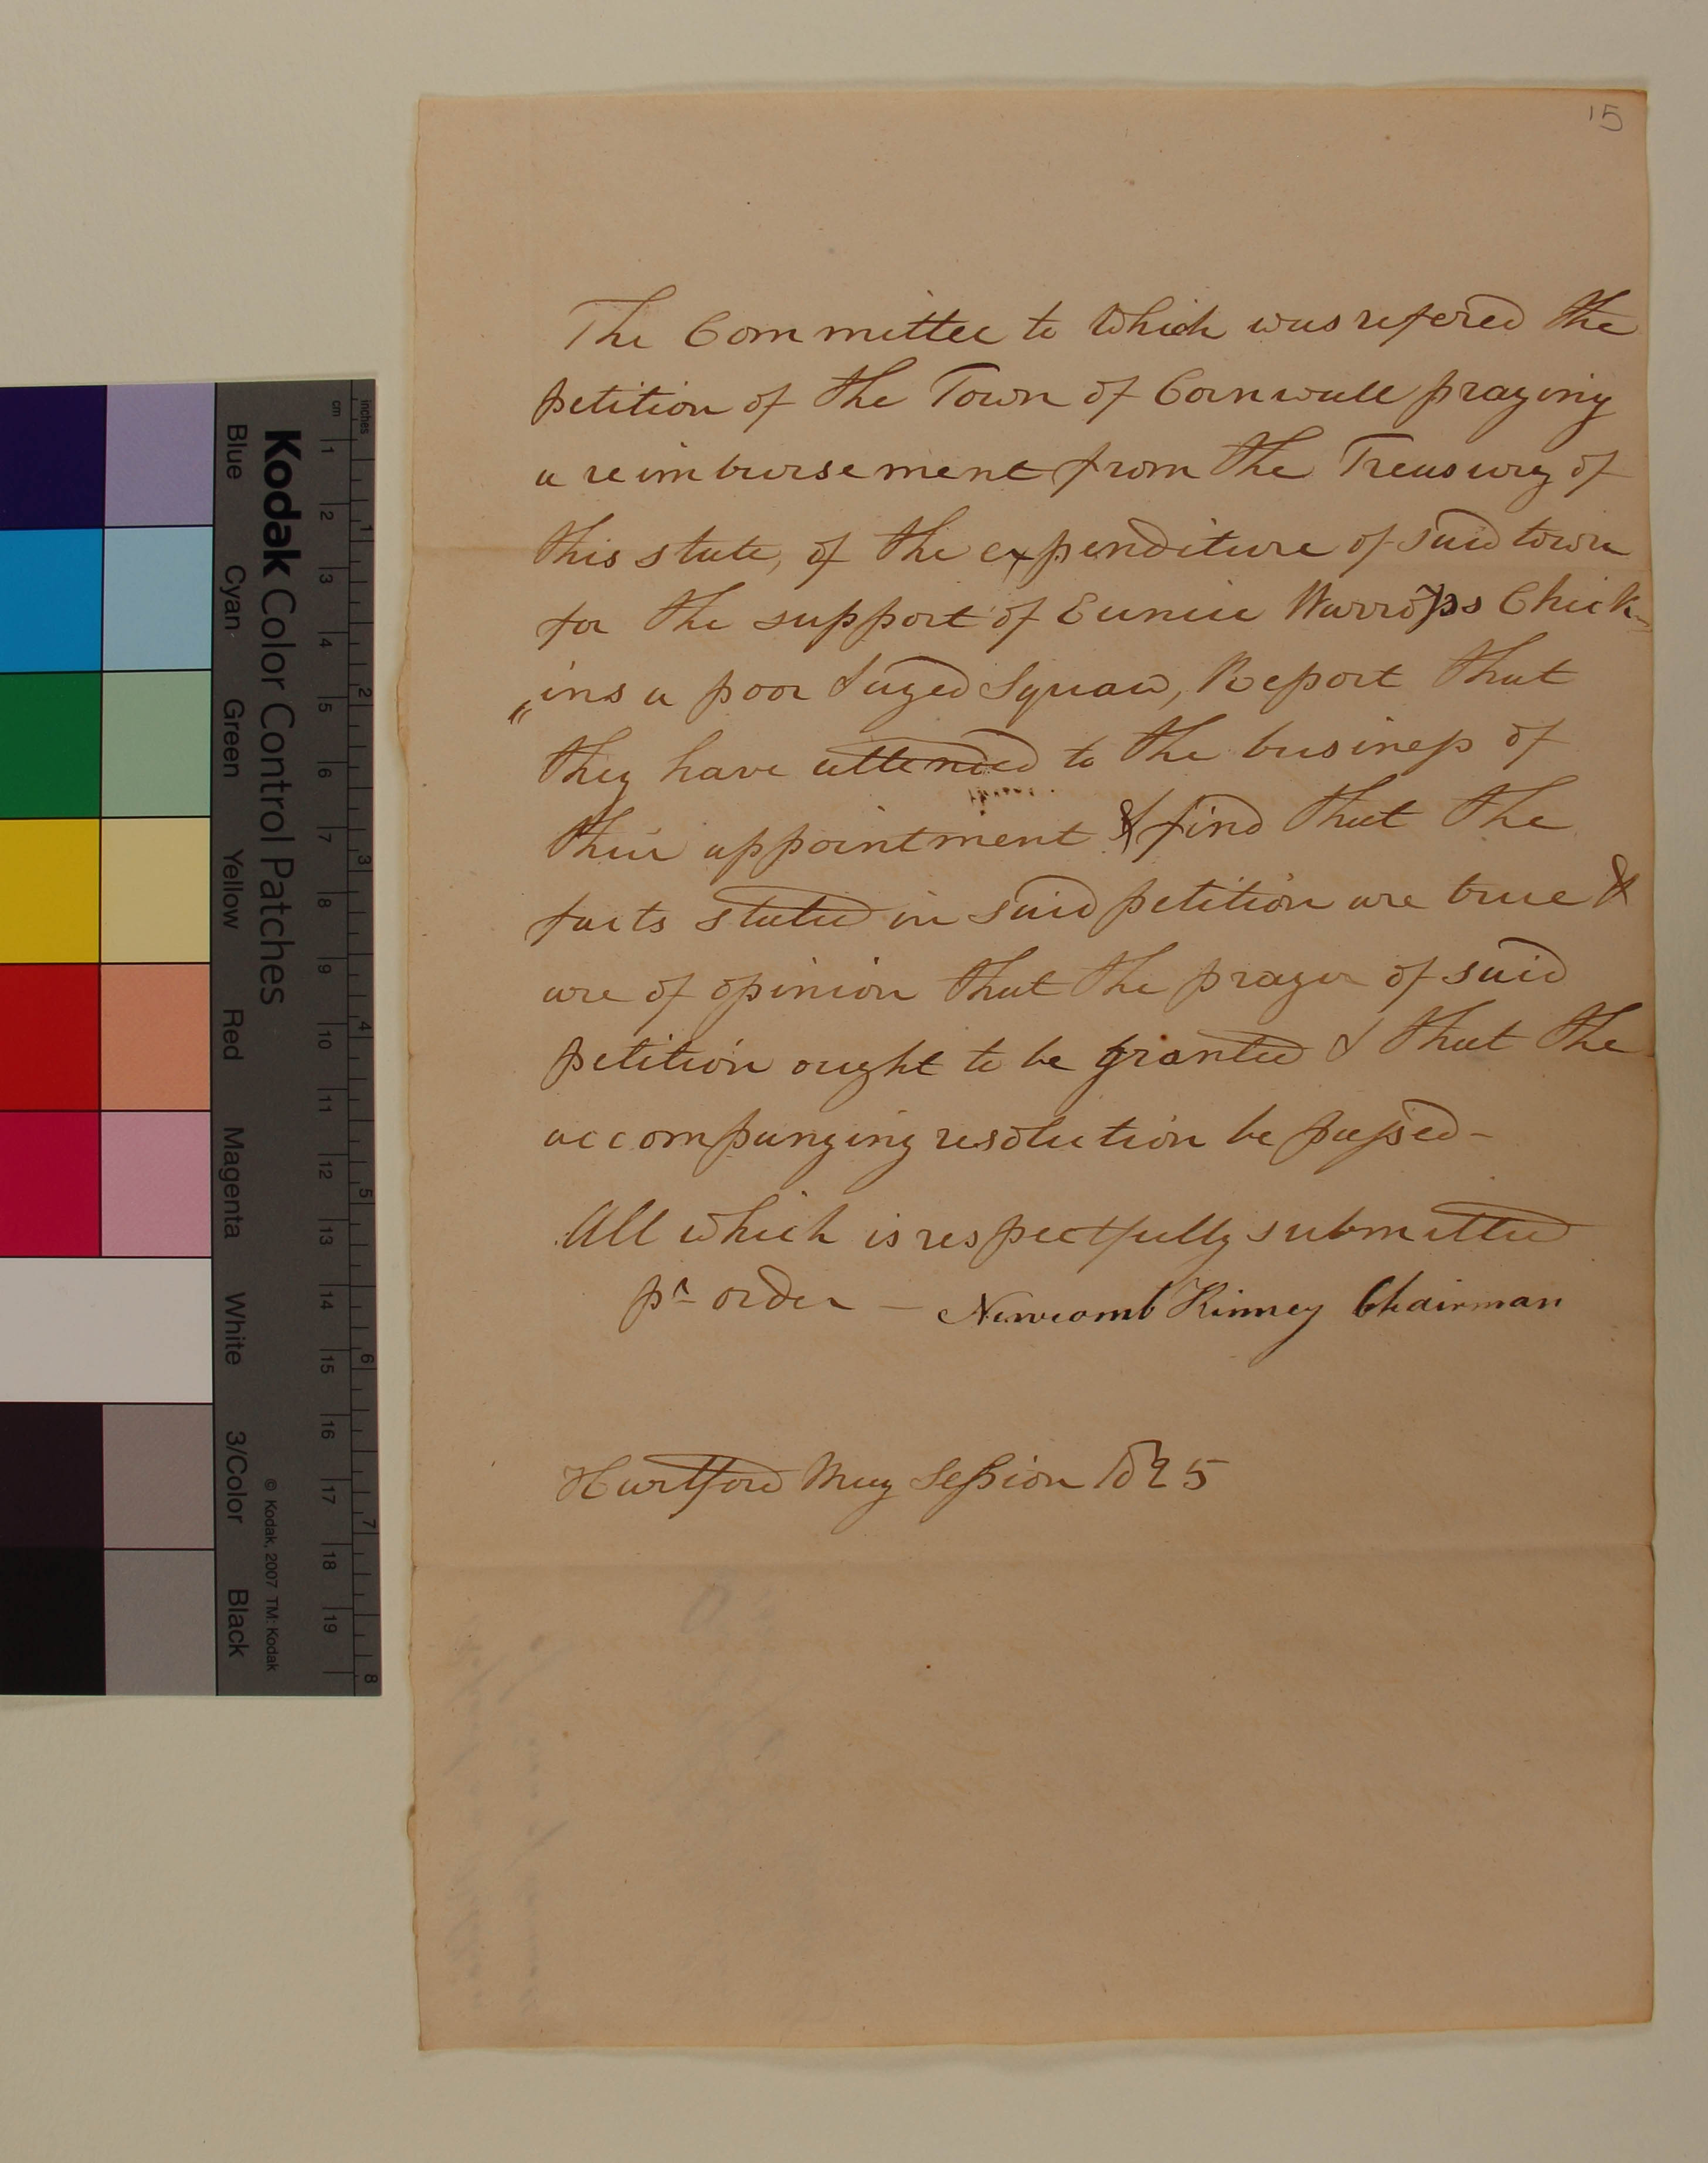 15
The Committee to which was refered the
petition of the Town of Cornwall praying
a reimbursement from the Treasury of
this state, of the expenditure of said town
for the support of Eunice Warrops Chick-
"ins a poor & aged Squaw, Report that
they have attended to the business of
their appointment & find that the
facts stated in said petition are true &
are of opinion that the prayer of said
petition ought to be granted & that the
accompanying resolution be passed-
All which is respectfully submitted
pr order - Newcomb Kinney Chairman
Hartford May Session 1825
inches
cm
1 2 3 4 5 6 7 8 9 10 11 12 13 14 15 16 17 18 19
1 2 3 4 5 6 7 8
Kodak Color Control Patches
© Kodak, 2007 TM: Kodak
Blue Cyan Green Yellow Red Magenta White 3/Color Black